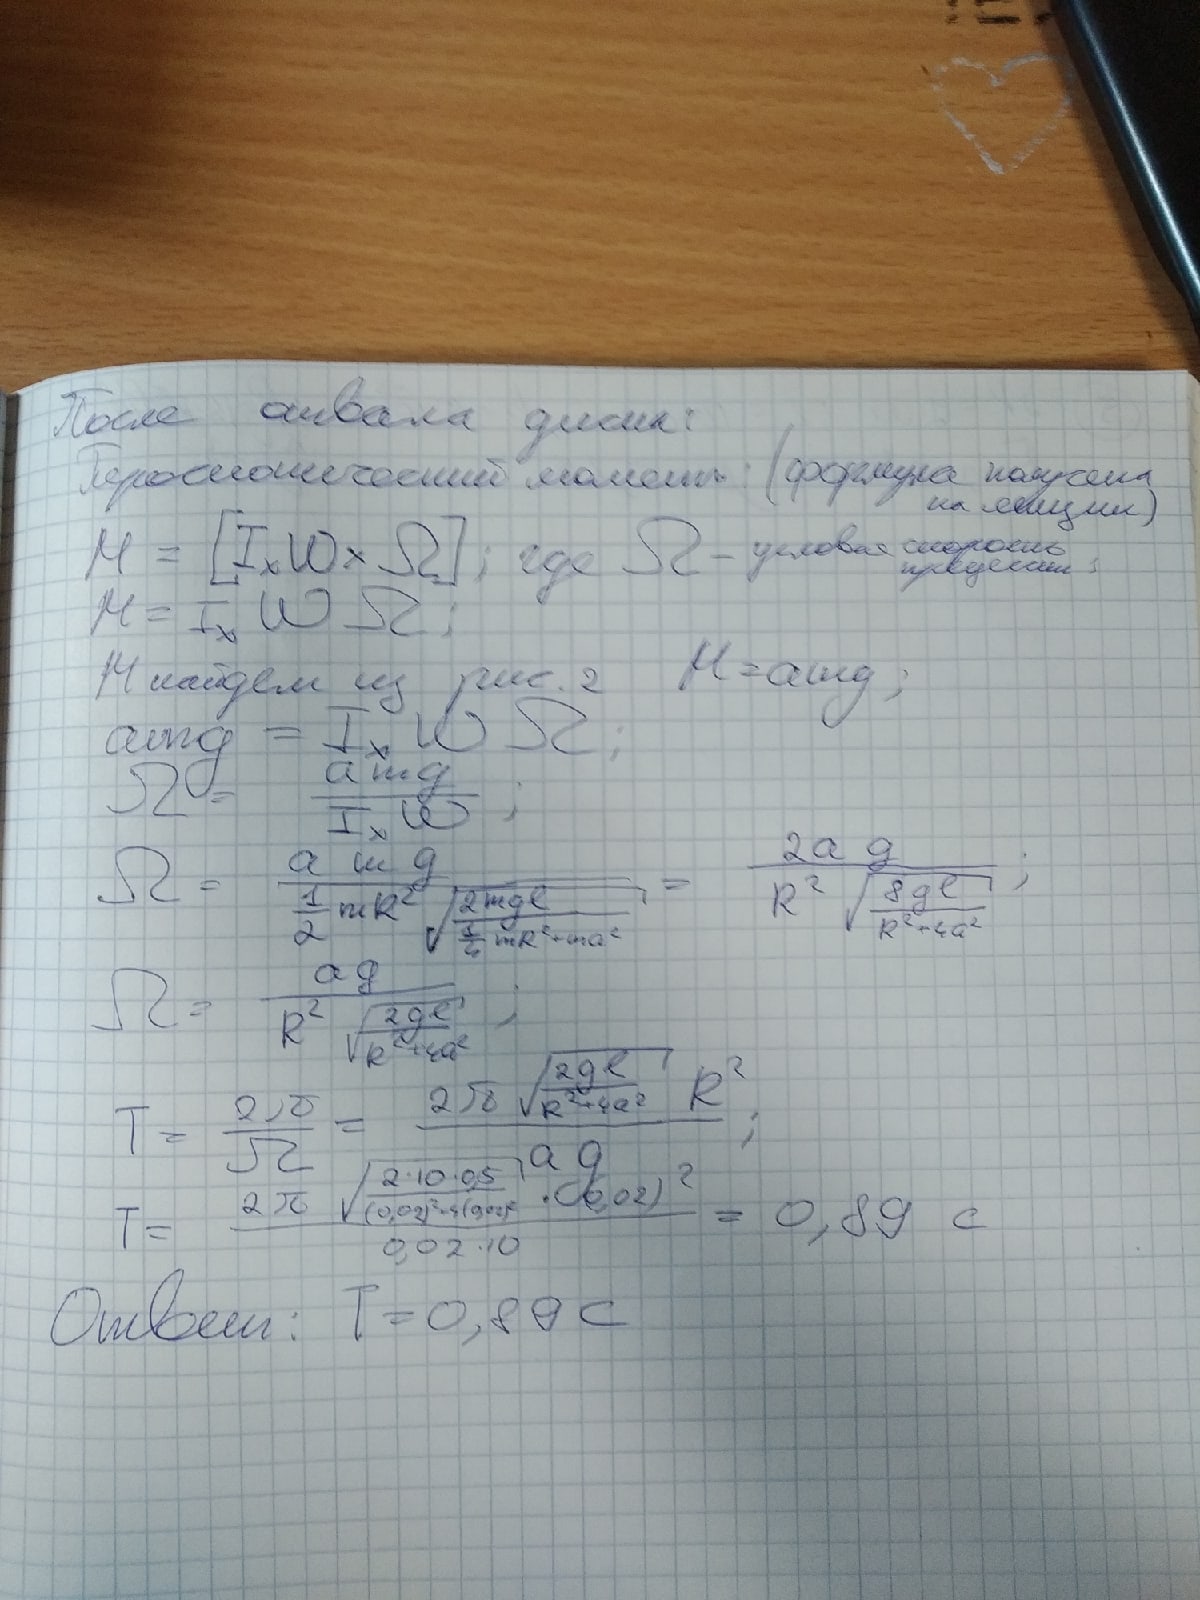 После отвала диска:
Гироскопический момент: (формула получена
на лекции)
M = [Iₓω × Ω]; где Ω – угловая скорость
прецессии;
M = Iₓ ω Ω;
M найдем из рис. 2 M = amg;
amg = Iₓ ω Ω;
Ω = amg / (Iₓ ω);
Ω = a m g / (1/2 mR² √(2mgl / (1/4 mR² + ma²))) = 2ag / (R² √(8gl / (R² + 4a²)));
Ω = ag / (R² √(2gl / (R² + 4a²)));
T = 2π / Ω = 2π √(2gl / (R² + 4a²)) R² / (ag);
T = 2π √(2·10·0,5 / ((0,02)² + 4(0,02)²)) · (0,02)² / (0,02·10) = 0,89 с
Ответ: T = 0,89 с